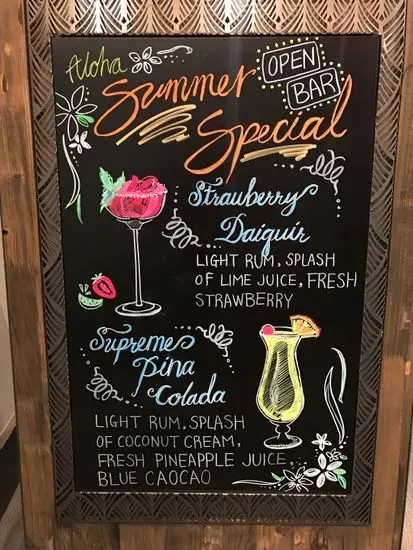 Aloha
Summer
Special
OPEN
BAR
Strawberry
Daiquir
LIGHT RUM, SPLASH
OF LIME JUICE, FRESH
STRAWBERRY
Supreme
Pina
Colada
LIGHT RUM, SPLASH
OF COCONUT CREAM,
FRESH PINEAPPLE JUICE,
BLUE CAOCAO